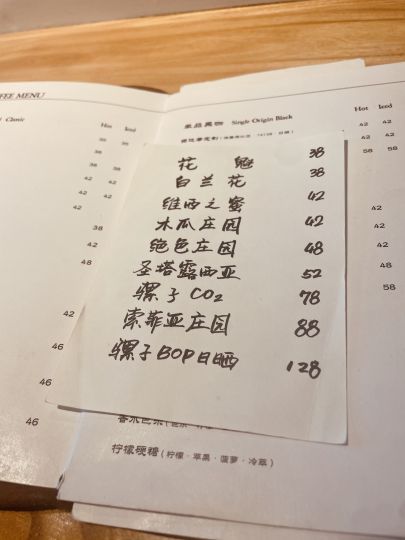 FFEE MENU
Classic
Hot Iced
38 38
38 38
42 42
42 42
38
42
48
42
46
46
46
单品黑咖 Single Origin Black
Hot Iced
42 42
42 42
58 58
42
42
48
58
花魁 38
白兰花 38
维西之蜜 42
木瓜庄园 42
绝色庄园 48
圣塔露西亚 52
骡子CO2 78
索菲亚庄园 88
骡子BOP日晒 128
柠檬硬糖(柠檬·苹果·菠萝·冷萃)